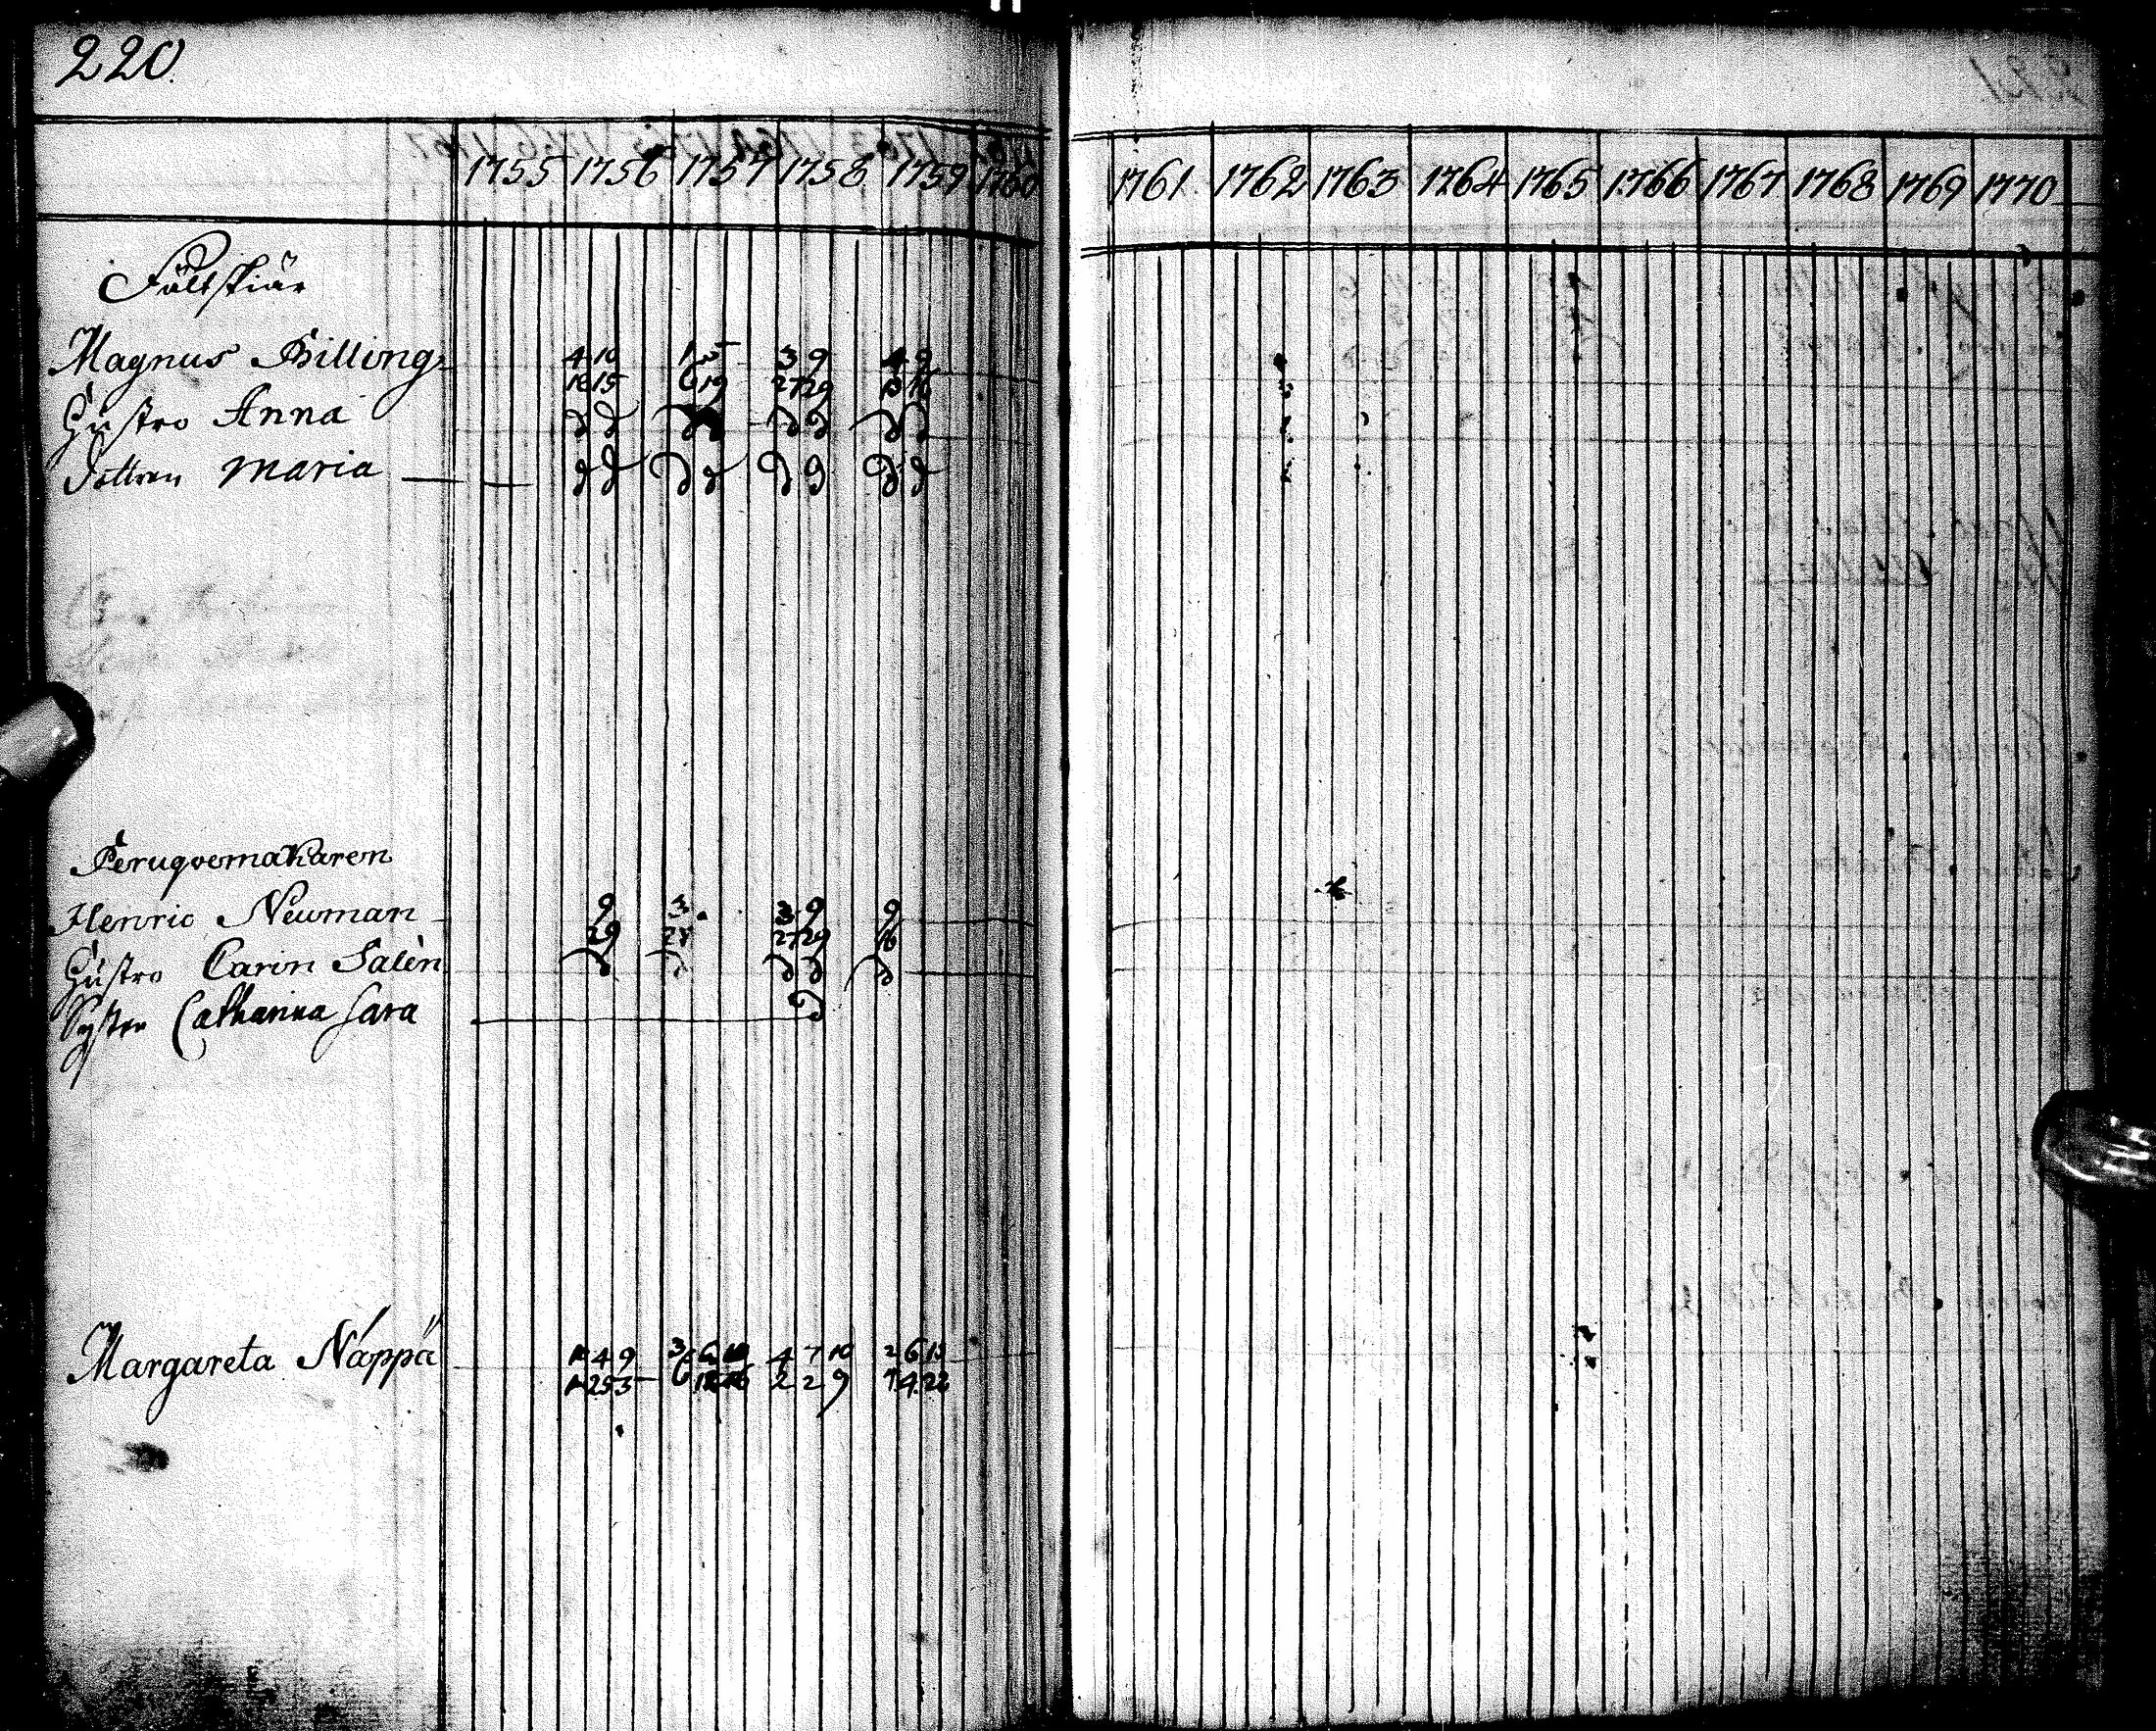 220.
1755 1756 1757 1758 1759 1760 1761 1762 1763 1764 1765 1766 1767 1768 1769 1770
Fältskiär
Magnus Billing 4 10 1 5 3 9 4 9
18 15 6 19 27 29
Hustro Anna
Dottren Maria
Peruqvemakaren
Henric Neuman 9 3 3 9 9
29 27 29 16
Hustro Carin Salèn
Syster Catharina Sara
Margareta Näppä 4 9 3 6 10 4 7 10 2 6 13
25 3 6 2 2 9 4 22